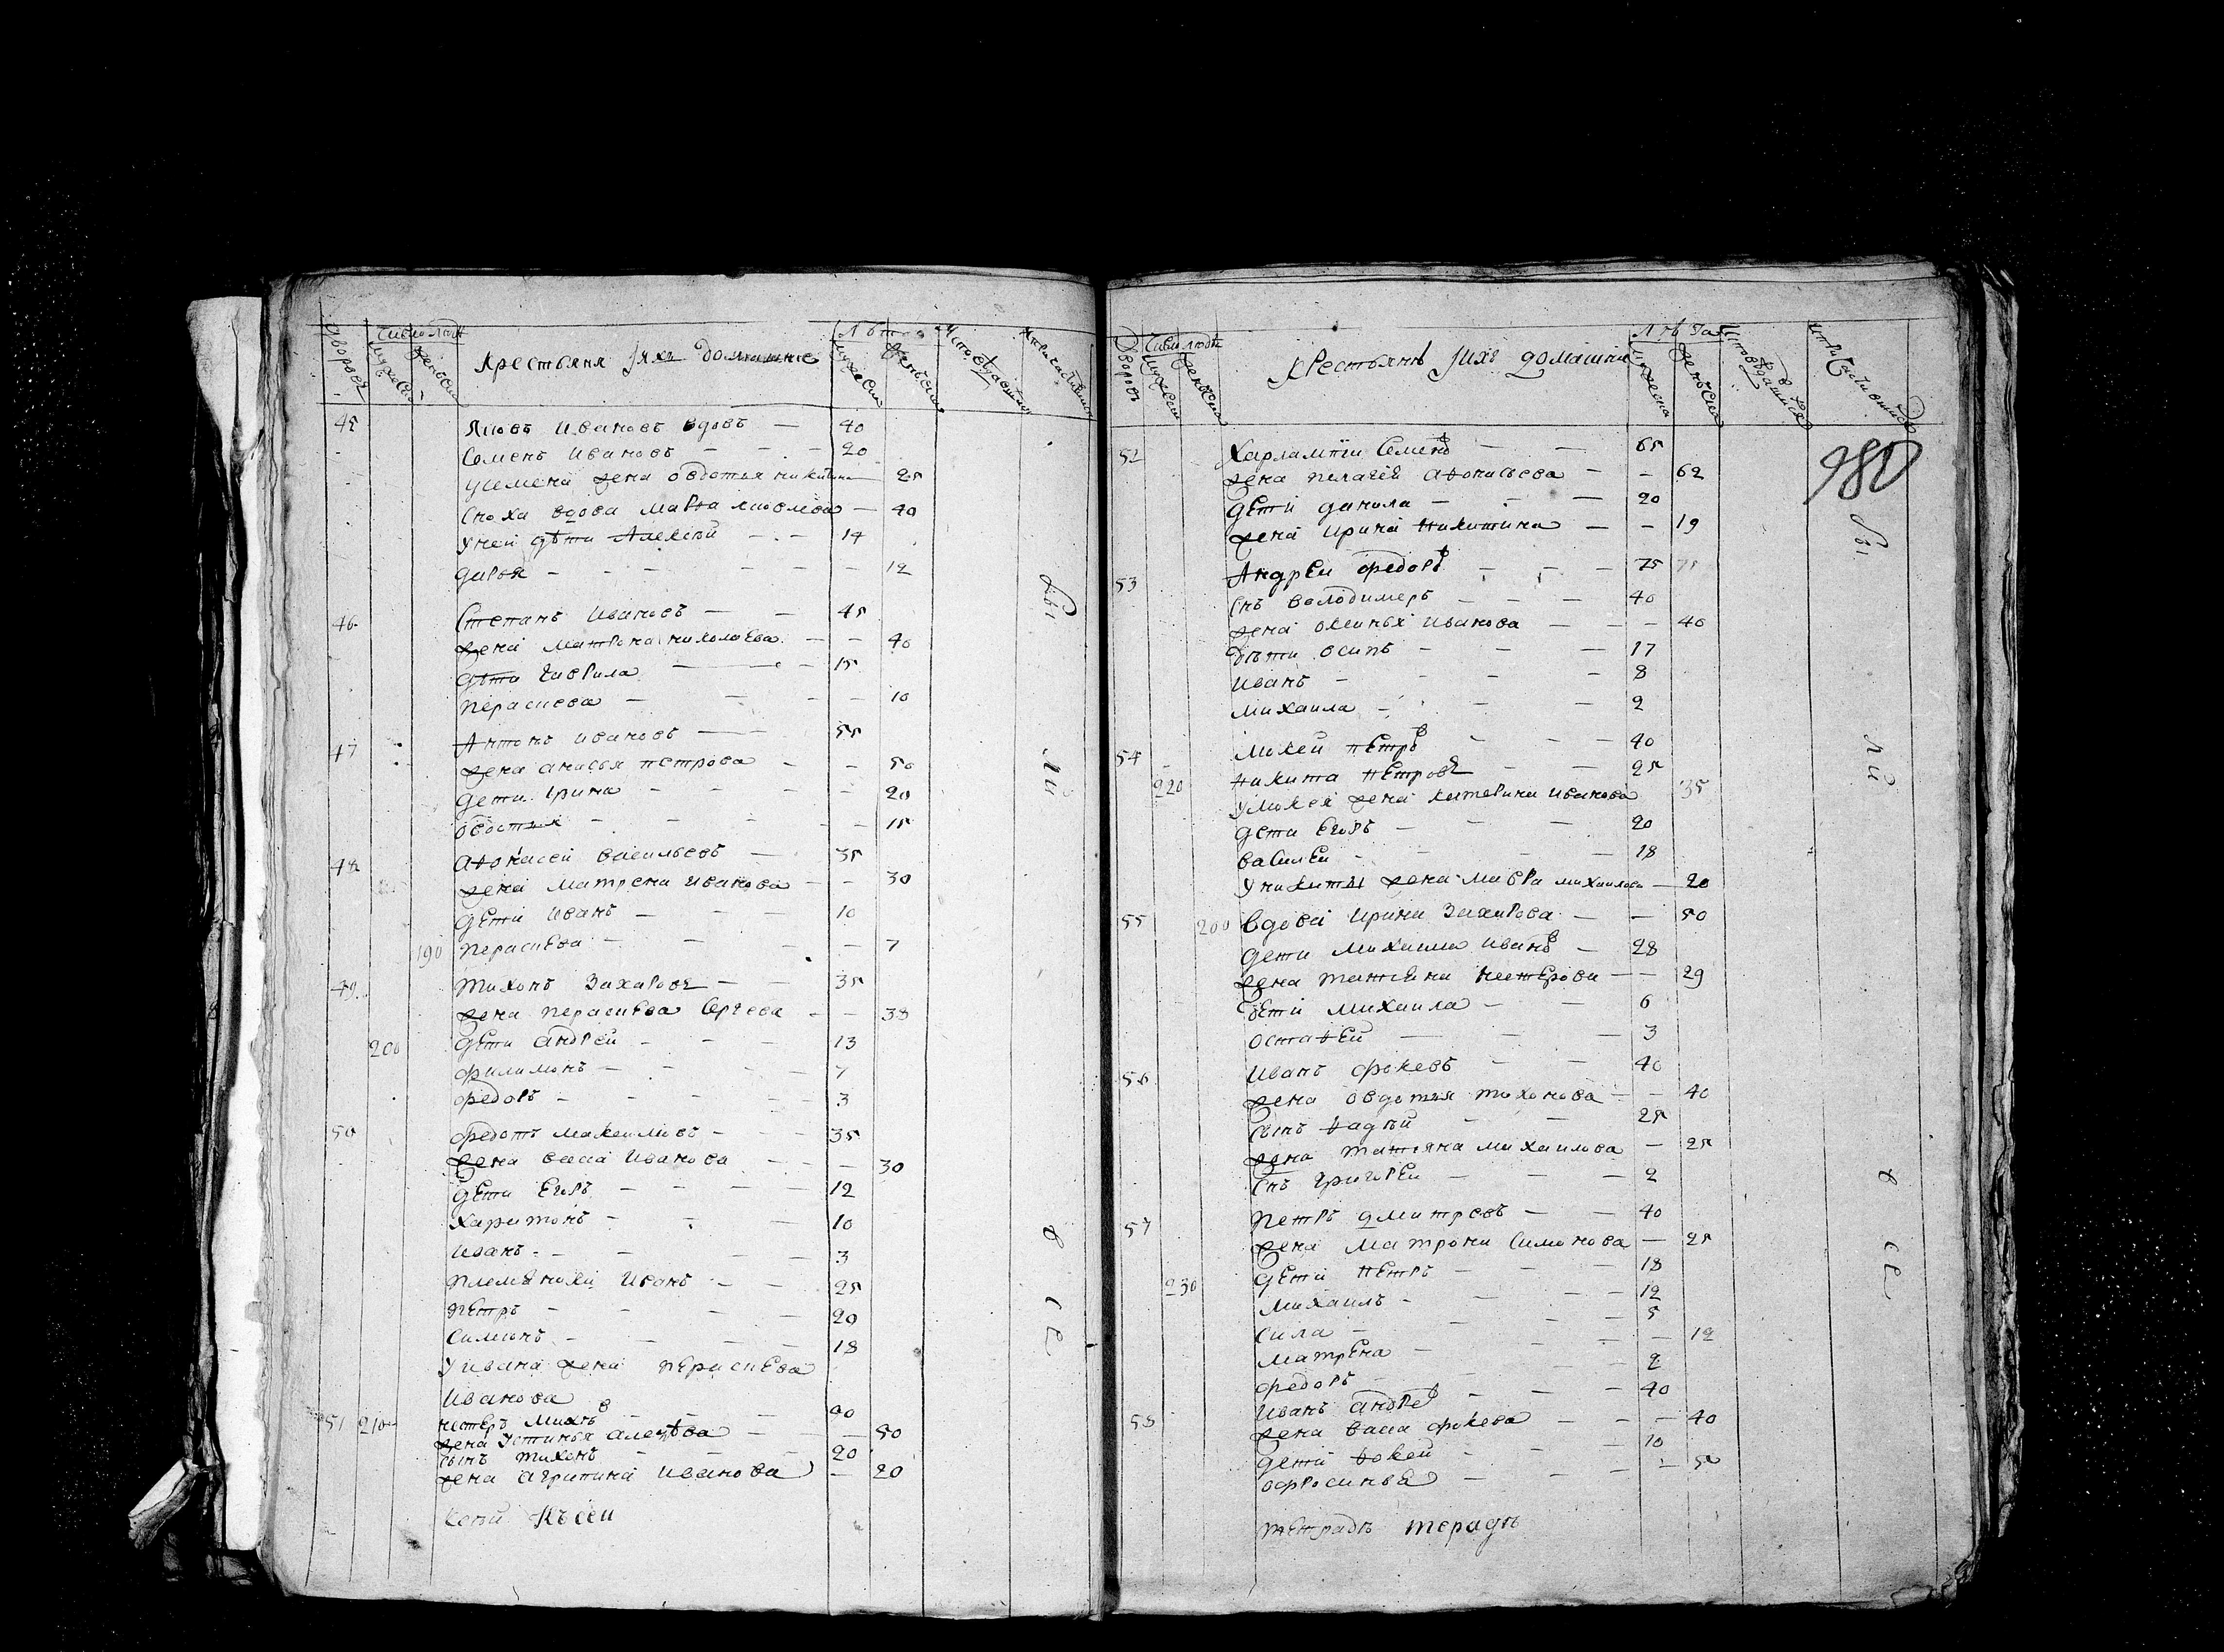 дворовъ
Число люде
мужеска
женска
крестьяня и ихъ домашние
Лѣта
мужеска
женска
исповѣдались
и причастились
45 Яковъ Ивановъ вдовъ — 40
Семенъ Ивановъ — 20
У Семена жена овдотья никитина — 25
Сноха вдова Мавра яковлева — 40
У ней дѣти Алексѣй — 14
дарья — 12
46 Степанъ Ивановъ — 45
жена матрона николаева — 40
дѣти Гаврила — 15
пераскева — 10
47 Антонъ ивановъ — 55
жена анисья петрова — 50
дети Ірина — 20
овдотья — 15
48 Афонасеи васильевъ — 35
жена матрена иванова — 30
дети иванъ — 10
190 пераскева — 7
49 тихонъ захаровъ — 35
жена пераскева сергева — 38
200 дети андрей — 13
филимонъ — 7
федоръ — 3
50 федотъ — 35
жена васса иванова — 30
дети егоръ — 12
харитонъ — 10
иванъ — 3
племяники иванъ — 25
петръ — 20
симионъ — 18
У ивана жена пераскева
иванова
51 210 нестеръ — 90
жена устинья алеѯѣва — 50
сынъ тихонъ — 20
жена агрипина иванова — 20
бы
ли
в
се
дворовъ
Число люде
мужеска
женска
крестьянѣ и ихъ домашнии
Лѣта
мужеска
женска
исповѣдались
и причастились
280
52 Харлампии Семенов — 65
жена пелагея афонасьева — 62
дети данила — 20
жена ирина никитина — 19
53 Андреи федоров — 75 75
снъ володимеръ — 40
жена оксинья иванова — 40
дѣти осипъ — 17
иванъ — 8
михаила — 2
54 мокей петров — 40
220 никита петровъ — 25
У мокея жена катерина иванова 35
дети егоръ — 20
василеи — 18
У никиты жена мавра михаилова — 20
55 200 вдова ирина захарова — 50
дети михаила иванов — 28
жена татияна нестерова — 29
дети михаила — 6
остафей — 3
56 иванъ фокевъ — 40
жена овдотья тихонова — 40
сынъ фадѣй — 25
жена татияна михаилова — 25
снъ григореи — 2
57 петръ дмитревъ — 40
жена матрона симонова — 25
230 дети петръ — 18
михаилъ — 12
сила — 5
матрена — 12
федоръ — 2
58 иванъ андре — 40
жена васса фокева — 40
дети фокей — 10
офросинья —
бы
ли
в
се